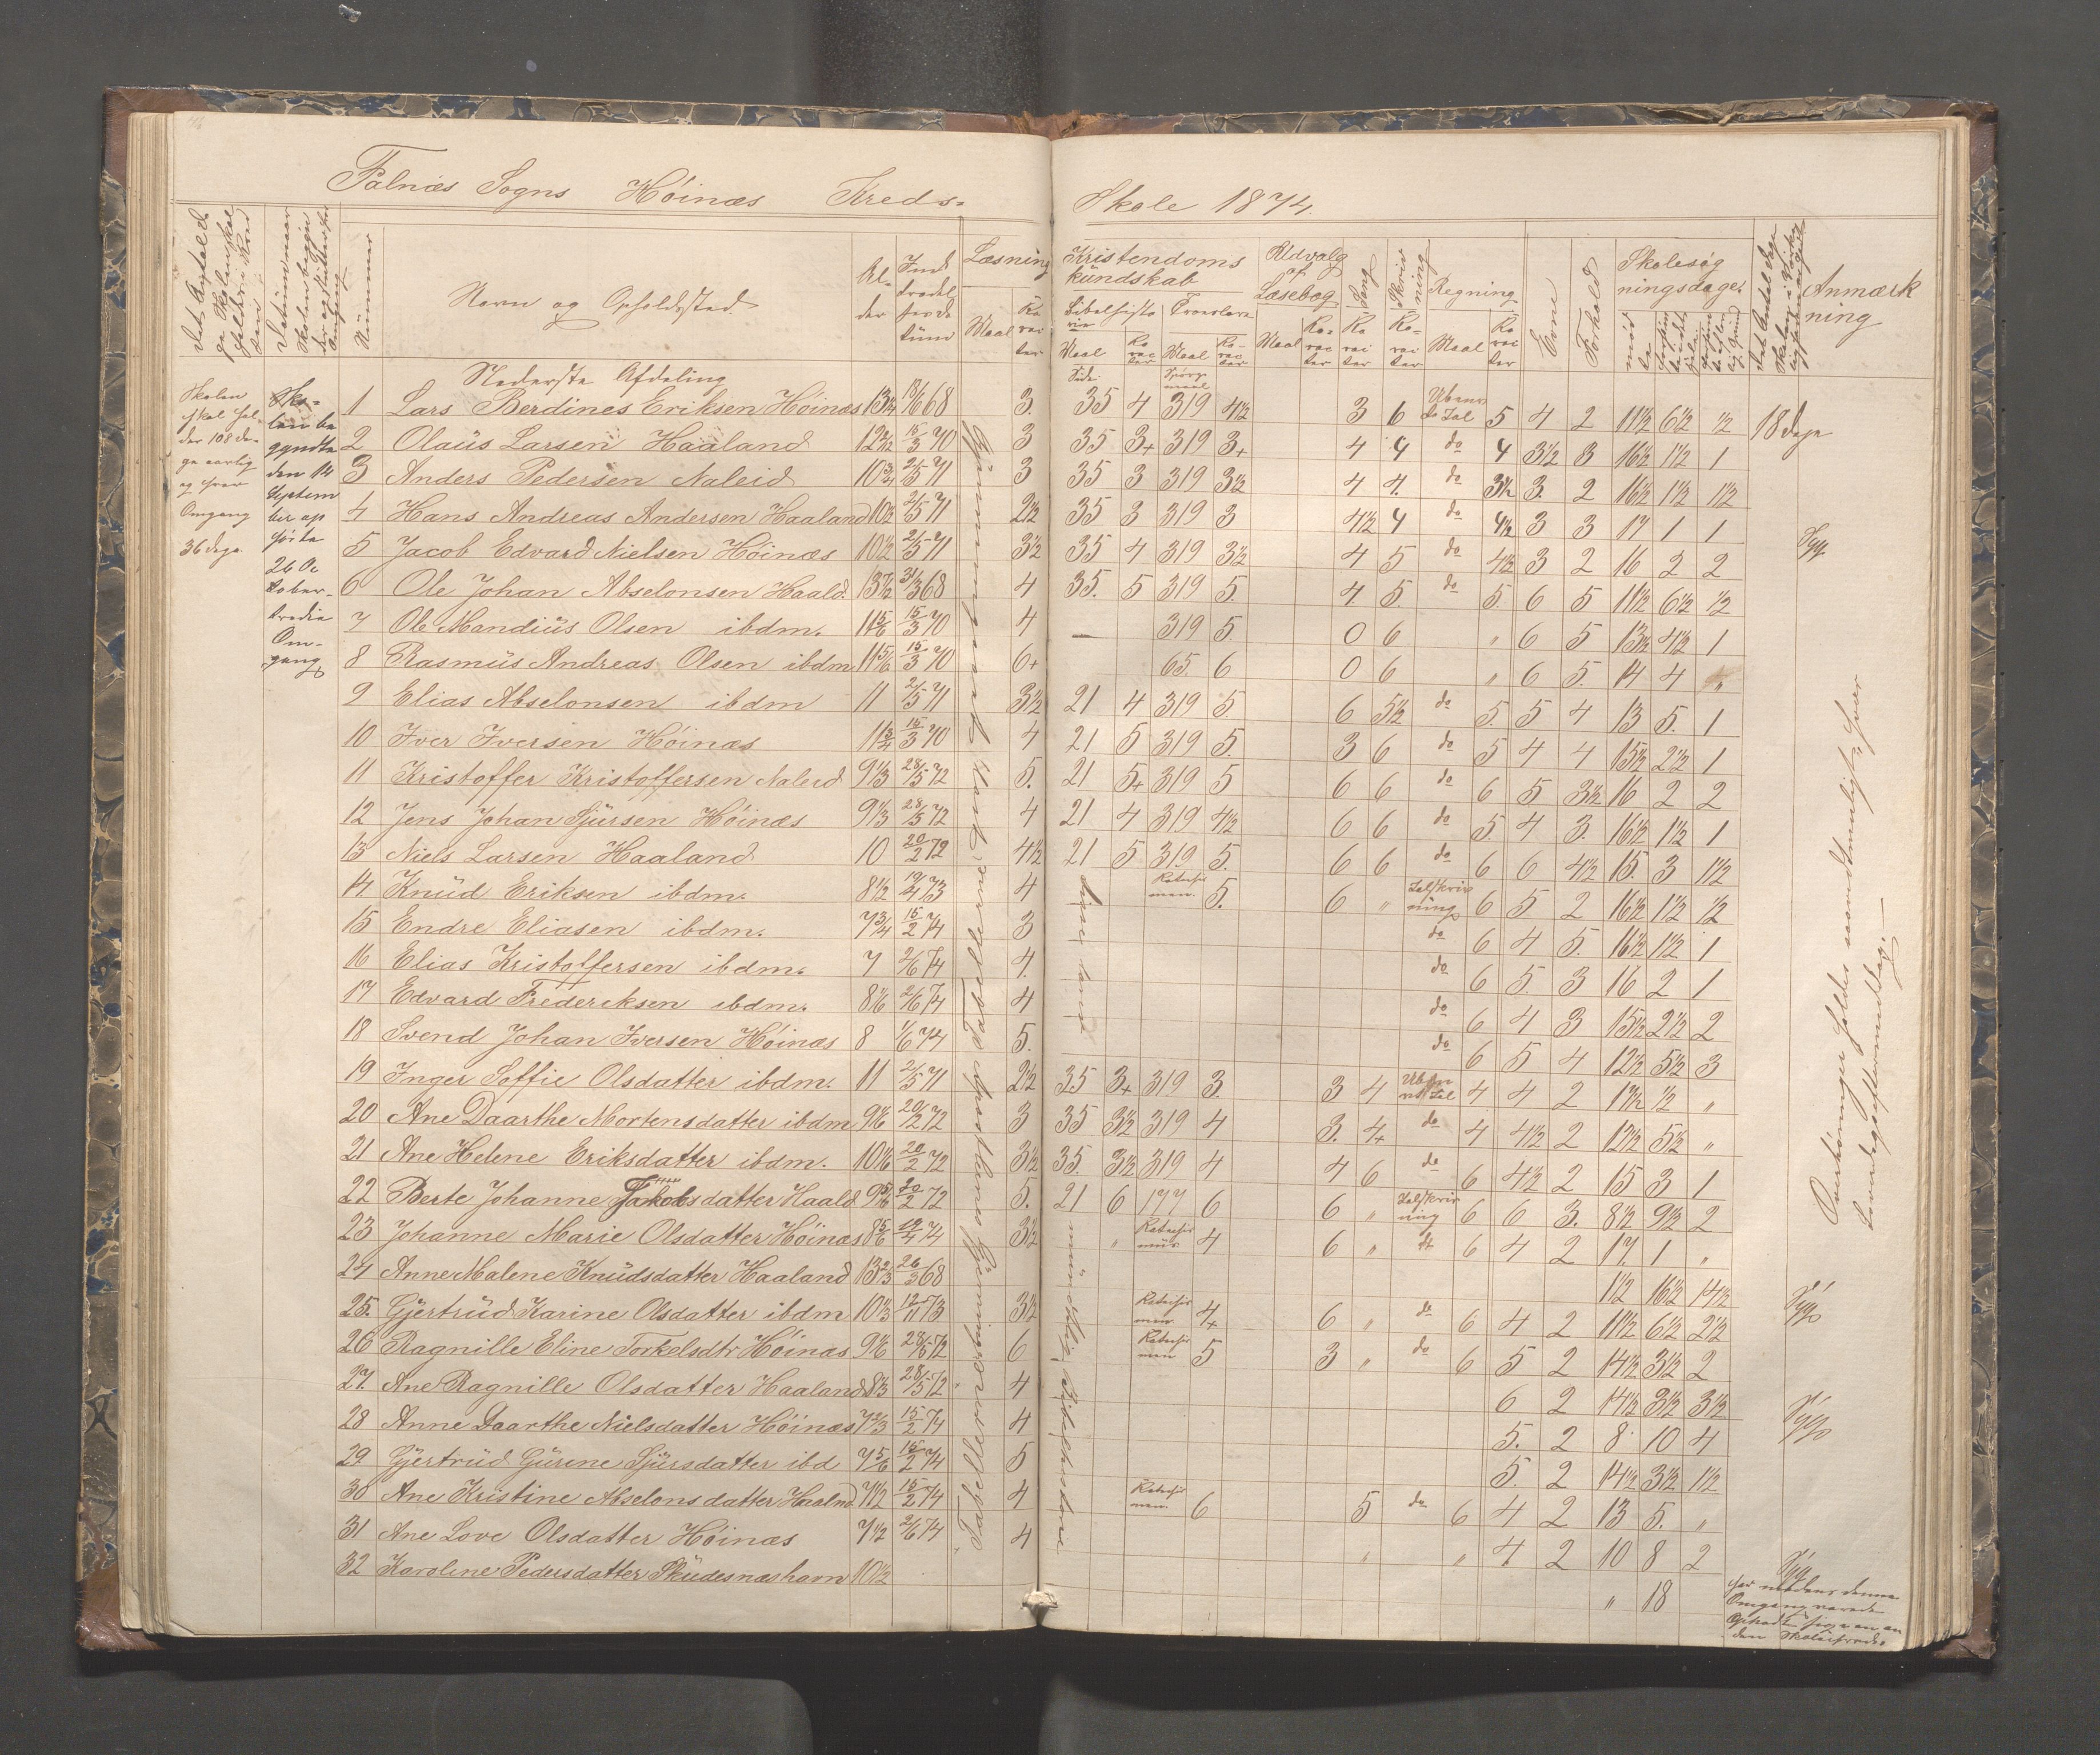 Falnæs Sogns Høinæs Kreds-
Skole 1874.
Nummer
Navn og Opholdssted
Al-
der
Ind
trædel
sesda
tum
Læsning
Maal
Ka
rac
ter
Kristendoms
kundskab
Bibelhisto
rie
Troeslære
Maal
Ka
rac
ter
Maal
Ka-
rac
ter
Udvalg
af
Læsebog
Maal
Ka-
rac
ter
Sang
Ka
rac
ter
Skriv
ning
Ka-
rac
ter
Regning
Maal
Ka
rac
ter
Evne
Forhold
Skolesøg
ningsdage.
mød
te
Anmærk
ning
Nederste Afdeling
Skolen
skal hol
des 108 da-
ge aarlig
og hver
Omgang
36 dage
Sko-
len be
gyndte
den 14
Septem
ber op
hørte
26 Oc
tober-
tredie
Om-
gang
1 Lars Berdines Eriksen Høinæs 13¾ 18/6 68 3. 35 4 319 4½ 3 6 5 4 2 11½ 6½ ½ 18 dage
2 Olaüs Larsen Haaland 12 2/12 15/3 70 3 35 3+ 319 3+ 4 4 do 4 3½ 3 16½ 1½ 1
3 Anders Pedersen Naleid 10¾ 2/5 71 3 35 3 319 3½ 4 4. do 3½ 3. 2 16½ 1½ 1½
4 Hans Andreas Andersen Haaland 10½ 2/5 71 2½ 35 3 319 3 4½ 4 do 4½ 3 3 17 1 1
5 Jacob Edvard Nielsen Høinæs 10½ 2/5 71 3½ 35 4 319 3½ 4 5 do 4½ 3 2 16 2 2 Syg.
6 Ole Johan Abselonsen Haald. 13½ 31/3 68 4 35. 5 319 5. 4 5. do 5. 6 5 11½ 6½ ½
7 Ole Mandiüs Olsen ibdm. 11 5/6 15/3 70 4 — 319 5. 0 6 " 6 5 13½ 4½ 1
8 Rasmüs Andreas Olsen ibdm 11 5/6 15/3 70 6+ 65. 6 0 6 " 6 5. 14 4 "
9 Elias Abselonsen ibdm 11 2/5 71 3½ 21 4 319 5. 6 5½ do 5. 5 4 13 5. 1
10 Iver Iversen Høinæs 11¾ 15/3 70 4 21 5 319 5. 3 6 do 5 4 4 15½ 2½ 1
11 Kristoffer Kristoffersen Naleid 9⅓ 28/5 72 5. 21 5+ 319 5 6 6 do 6 5 3½ 16 2 2
12 Jens Johan Sjürsen Høinæs 9⅓ 28/5 72 4 21 4 319 4½ 6 6 do 5. 4 3. 16½ 1½ 1
13 Niels Larsen Haaland 10 20/2 72 4½ 21 5 319 5. 6 6 do 6 6 4½ 15. 3 1½
14 Knüd Eriksen ibdm. 8½ 19/4 73 4 5. 6 " Talskriv
ning 6 5 2 16½ 1½ ½
15 Endre Eliasen ibdm. 7¾ 15/2 74 3 do 6 4 5. 16½ 1½ 1
16 Elias Kristoffersen ibdm. 7 2/6 74 4. do 6 5. 3 16 2 1
17 Edvard Fredereksen ibdm. 8⅙ 2/6 74 4 do 6 4 3 15½ 2½ 2
18 Svend Johan Iversen Høinæs 8 1/6 74 5. do 6 5 4 12½ 5½ 3
19 Inger Soffie Olsdatter ibdm. 11 2/5 71 2½ 35 3+ 319 3. 3 4 4 4 2 17½ ½ "
20 Ane Daarthe Mortensdatter ibdm 9⅙ 20/2 72 3 35 3½ 319 4 3. 4+ do 4 4½ 2 12½ 5½ "
21 Ane Helene Eriksdatter ibdm. 10⅙ 20/2 72 3½ 35. 3½ 319 4 4 6 do 6 4½ 2 15 3 1
22 Berte Johanne Jakobsdatter Haald 9 5/6 20/2 72 5. 21 6 177 6 6 " Talskriv
ning 6 6 3. 8½ 9½ 2
23 Johanne Marie Olsdatter Høinæs 8 5/6 19/4 74 3½ " 4 6 " 6 4 2 17. 1 "
24 Anne Malene Knüdsdatter Haaland 13⅔ 26/3 68 1½ 16½ 14½ Syg
25. Gjertrüd Karine Olsdatter ibdm 10⅓ 12/11 73 3½ 4+ 6 " do 6 4 2 11½ 6½ 2½
26 Ragnille Eline Torkelsdtr Høinæs 9⅙ 28/5 72 6 5 3 " do 6 5 2 14½ 3½ 2
27. Ane Ragnille Olsdatter Haaland 8⅓ 28/5 72 4 6 2 14½ 3½ 3½ Syg
28 Anne Daarthe Nielsdatter Høinæs 7⅔ 15/2 74 4 5. 2 8 10 4
29 Gjertrüd Gürine Sjürsdatter ibd 7 5/6 15/2 74 5 5. 2 14½ 3½ 1½
30 Ane Kristine Abselonsdatter Haaland 7½ 15/2 74 4 6 5 do 6 4 2 13 5. "
31 Ane Love Olsdatter Høinæs 7½ 2/6 74 4 " " 4 2 10 8 2 Syg
32 Karoline Pedersdatter Skudesnæshavn 10½ " 18
har medens denne
Omgang varede
opholdt sig i en an
den Skolekreds.